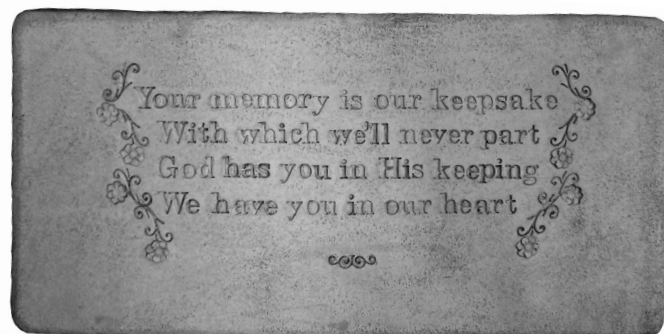 Your memory is our keepsake
With which we'll never part
God has you in His keeping
We have you in our heart